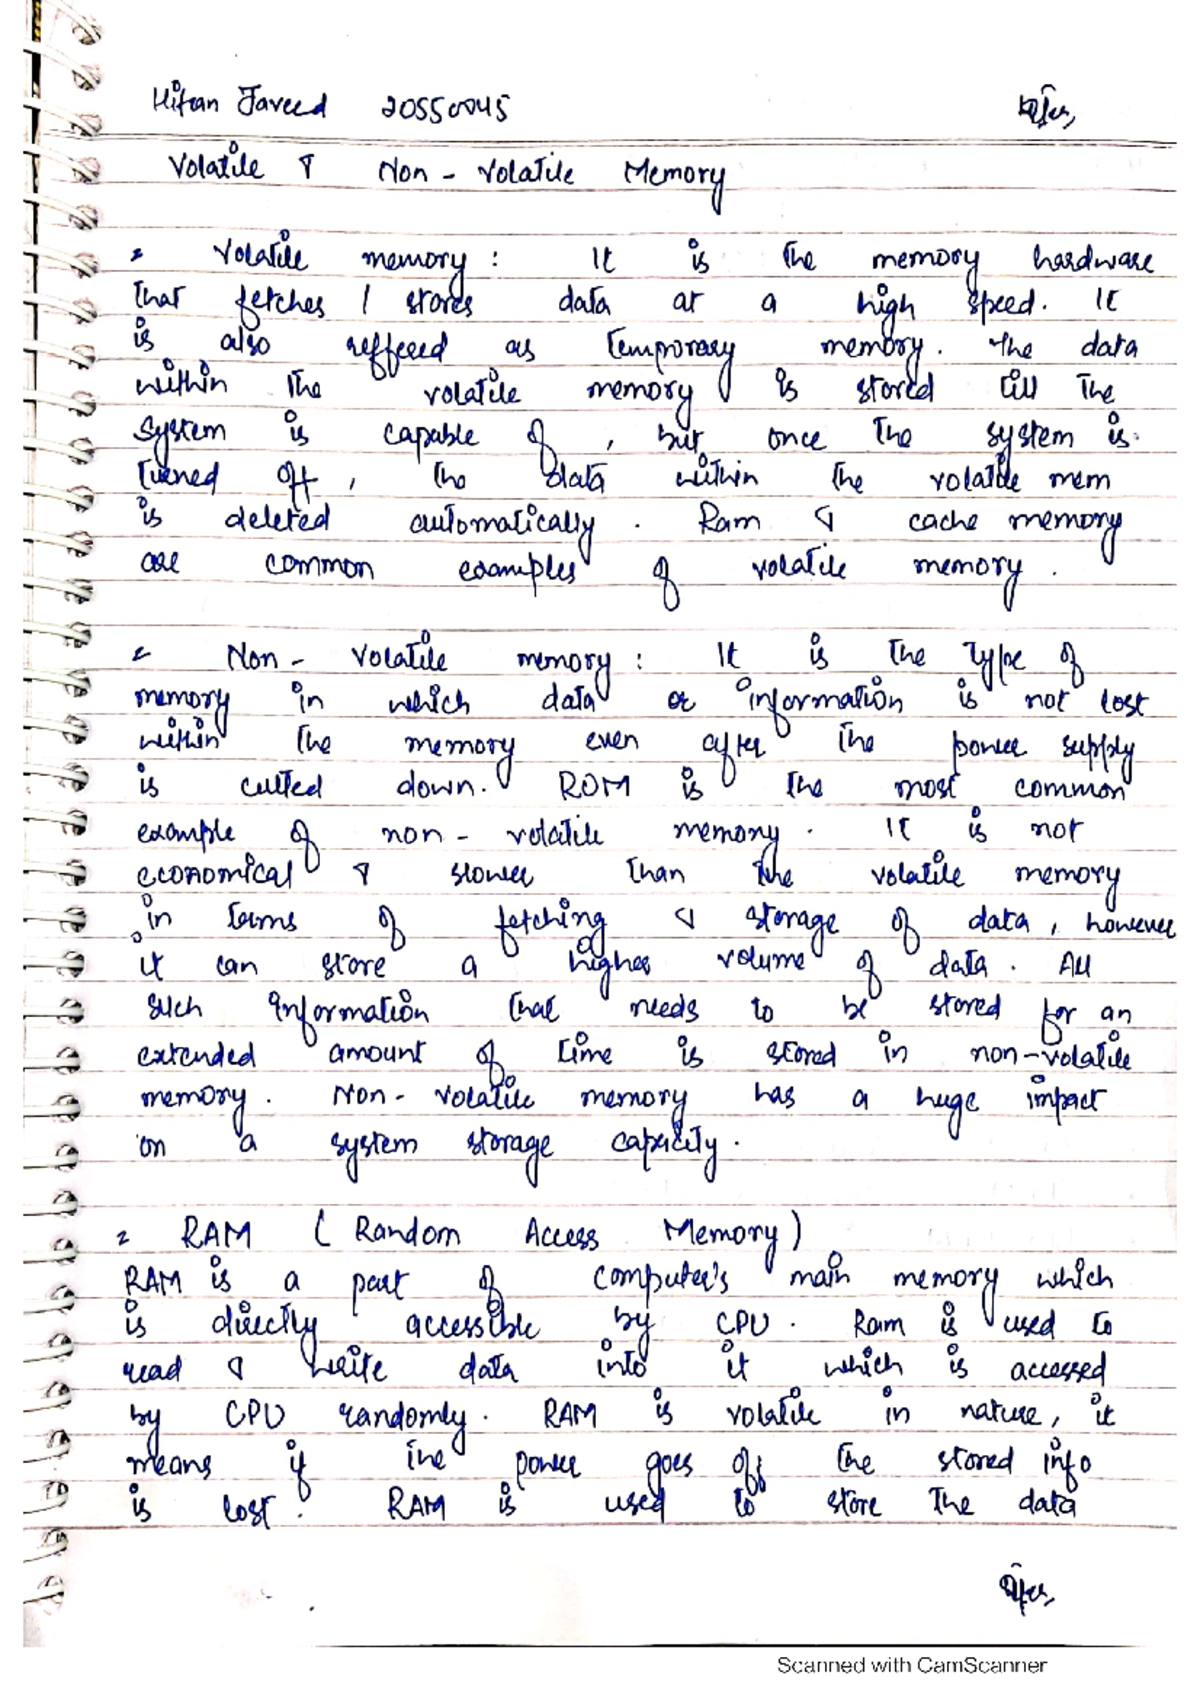 Hifan Javeed 20550045
Volatile & Non - Volatile Memory
Volatile memory : It is the memory hardware
that fetches / stores data at a high speed. It
is also reffered as temporary memory. The data
within the volatile memory is stored till the
system is capable of, but once the system is
turned off, the data within the volatile mem
is deleted automatically. Ram & cache memory
are common examples of volatile memory.
Non - Volatile memory : It is the type of
memory in which data or information is not lost
within the memory even after the power supply
is cutted down. ROM is the most common
example of non - volatile memory. It is not
economical & slower than the volatile memory
in terms of fetching & storage of data, however
it can store a higher volume of data. All
such information that needs to be stored for an
extended amount of time is stored in non-volatile
memory. Non - volatile memory has a huge impact
on a system storage capacity.
RAM ( Random Access Memory )
RAM is a part of computer's main memory which
is directly accessible by CPU. Ram is used to
read & write data into it which is accessed
by CPU randomly. RAM is volatile in nature, it
means if the power goes off the stored info
is lost. RAM is used to store the data
Scanned with CamScanner